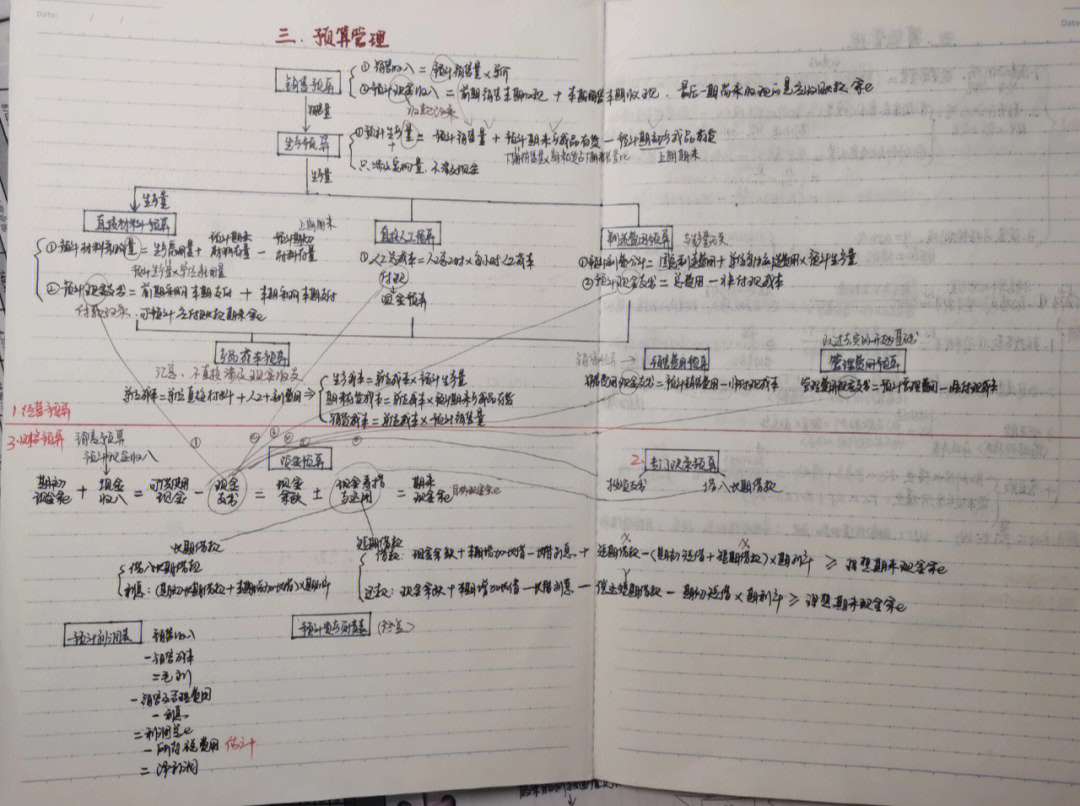 三、预算管理
销售预算
① 销售收入 = 预计销售量 × 单价
② 预计现金收入 = 前期销售本期收现 + 本期销售本期收现. 最后一期尚未收现的是应收账款余e
销量
生产预算
① 预计生产量 = 预计销售量 + 预计期末产成品存货 - 预计期初产成品存货
只涉及实物量, 不涉及现金
上期期末
生产量
生产量
直接材料预算
上期期末
① 预计材料采购量 = 生产需用量 + 预计期末材料存量 - 预计期初材料存量
预计生产量 × 单位耗用量
② 预计现金支出 = 前期采购本期支付 + 本期采购本期支付
可预计应付账款期末余e
直接人工预算
① 人工总成本 = 人工总工时 × 每小时人工成本
付现
现金预算
制造费用预算
① 预计制费合计 = 固定制造费用 + 单位变动制造费用 × 预计生产量
② 预计现金支出 = 总费用 - 非付现成本
产品成本预算
汇总、不直接涉及现金收支
单位成本 = 单位直接材料 + 人工 + 制费用 ⇒
生产成本 = 单位成本 × 预计生产量
期末存货成本 = 单位成本 × 预计期末产成品存货
销货成本 = 单位成本 × 预计销售量
销售费用预算
销售费用现金支出 = 预计销售费用 - 非付现成本
以过去实际开支为基础
管理费用预算
管理费用现金支出 = 预计管理费用 - 非付现成本
1. 经营预算
3. 财务预算
销售预算
预计现金收入
现金预算
期初现金余e + 现金收入 = 可供使用现金 - 现金支出 = 现金余缺 ± 现金筹措与运用 = 期末现金余e
目标现金余e
2.
专门决策预算
投资支出
借入长期借款
长期借款
借入长期借款
利息: (期初长期借款 + 本期新增长借) × 期利率
短期借款
借款: 现金余缺 + 本期增加长借 - 长借利息 + 短期借款 - (期初短借 + 短期借款) × 期利率 ≥ 理想期末现金余e
X
X
还款: 现金余缺 + 本期增加长借 - 长借利息 - 偿还短期借款 - 期初短借 × 期利率 ≥ 理想期末现金余e
Y
预计利润表
预计资产负债表
销售收入
- 销售成本
= 毛利
- 销售及管理费用
- 利息
= 利润总e
- 所得税费用 估计
= 净利润